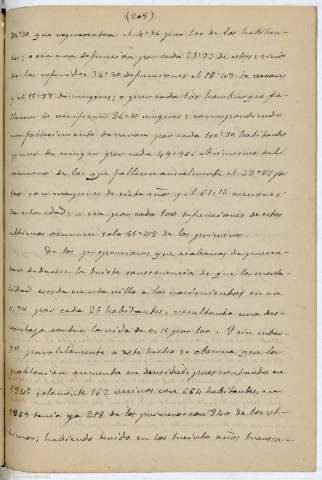 (205)
34'30 que representan el 4'36 por 100 de los habitan-
tes; o sea una defunción por cada 23'93 de estos; siendo
de las referidas 34'30 defunciones el 18'43 de varones
y el 15'87 de mugeres; o por cada 100 hombres que fa-
llecen lo verifican 86'10 mugeres: correspondiendo
un fallecimiento de varon por cada 40'30 habitantes
y uno de muger por cada 49'90. Asi mismo del
numero de los que fallecen anualmente el 38'87 por
100 son mayores de siete años y el 61'13 menores
de esta edad; o sea por cada 100 defunciones de estos
ultimos ocurren solo 55'43 de los primeros.
De las proporciones que acabamos de presen-
tar deducese la triste consecuencia de que la morta-
lidad excede en esta villa a los nacimientos en un
0,74 por cada 25 habitantes, resultando una des-
ventaja contra la vida de 0,15 por 100. Y sin embar-
go paralelamente a este hecho se observa que la
poblacion aumenta en densidad, pues contando en
1845 solamente 162 vecinos con 664 habitantes, en
1869 tenia ya 218 de los primeros con 840 de los ul-
timos; habiendo tenido en los treinta años transcu-